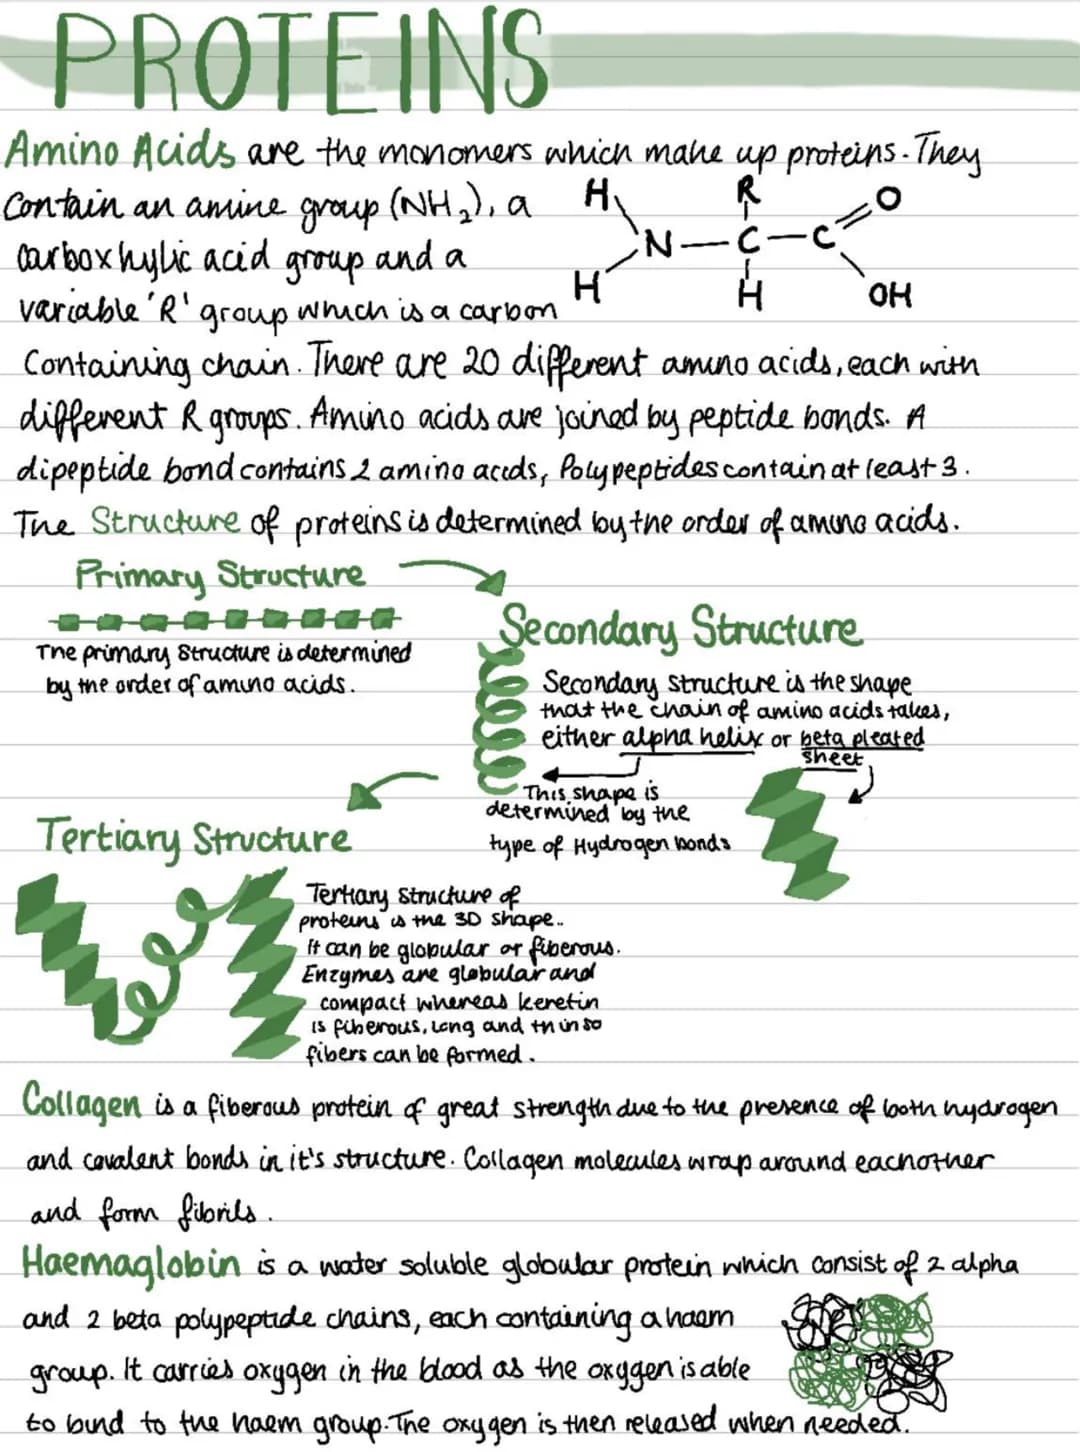 PROTEINS
Amino Acids are the monomers which make up proteins. They
contain an amine group (NH₂), a
carboxhylic acid group and a
variable 'R' group which is a carbon
H R O
N — C — C
H H OH
Containing chain. There are 20 different amino acids, each with
different R groups. Amino acids are joined by peptide bonds. A
dipeptide bond contains 2 amino acids, Polypeptides contain at least 3.
The Structure of proteins is determined by the order of amino acids.
Primary Structure
The primary structure is determined
by the order of amino acids.
Secondary Structure
Secondary structure is the shape
that the chain of amino acids takes,
either alpha helix or beta pleated
sheet
This shape is
determined by the
type of Hydrogen bonds
Tertiary Structure
Tertiary structure of
proteins is the 3D shape..
It can be globular or fiberous.
Enzymes are globular and
compact whereas keretin
is fiberous, long and thin so
fibers can be formed.
Collagen is a fiberous protein of great strength due to the presence of both hydrogen
and covalent bonds in it's structure. Collagen molecules wrap around eachother
and form fibrils.
Haemaglobin is a water soluble globular protein which consist of 2 alpha
and 2 beta polypeptide chains, each containing a haem
group. It carries oxygen in the blood as the oxygen is able
to bind to the haem group. The oxygen is then released when needed.